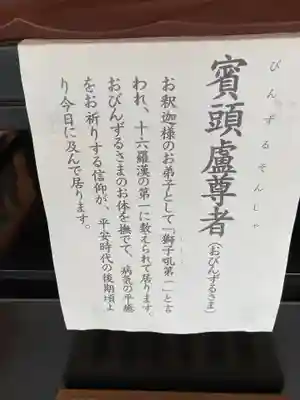 びんずるそんじゃ
賓頭盧尊者(おびんずるさま)
お釈迦様のお弟子として「獅子吼第一」と言
われ、十六羅漢の第一に数えられて居ります。
おびんずるさまのお体を撫でて、病気の平癒
をお祈りする信仰が、平安時代の後期頃よ
り今日に及んで居ります。